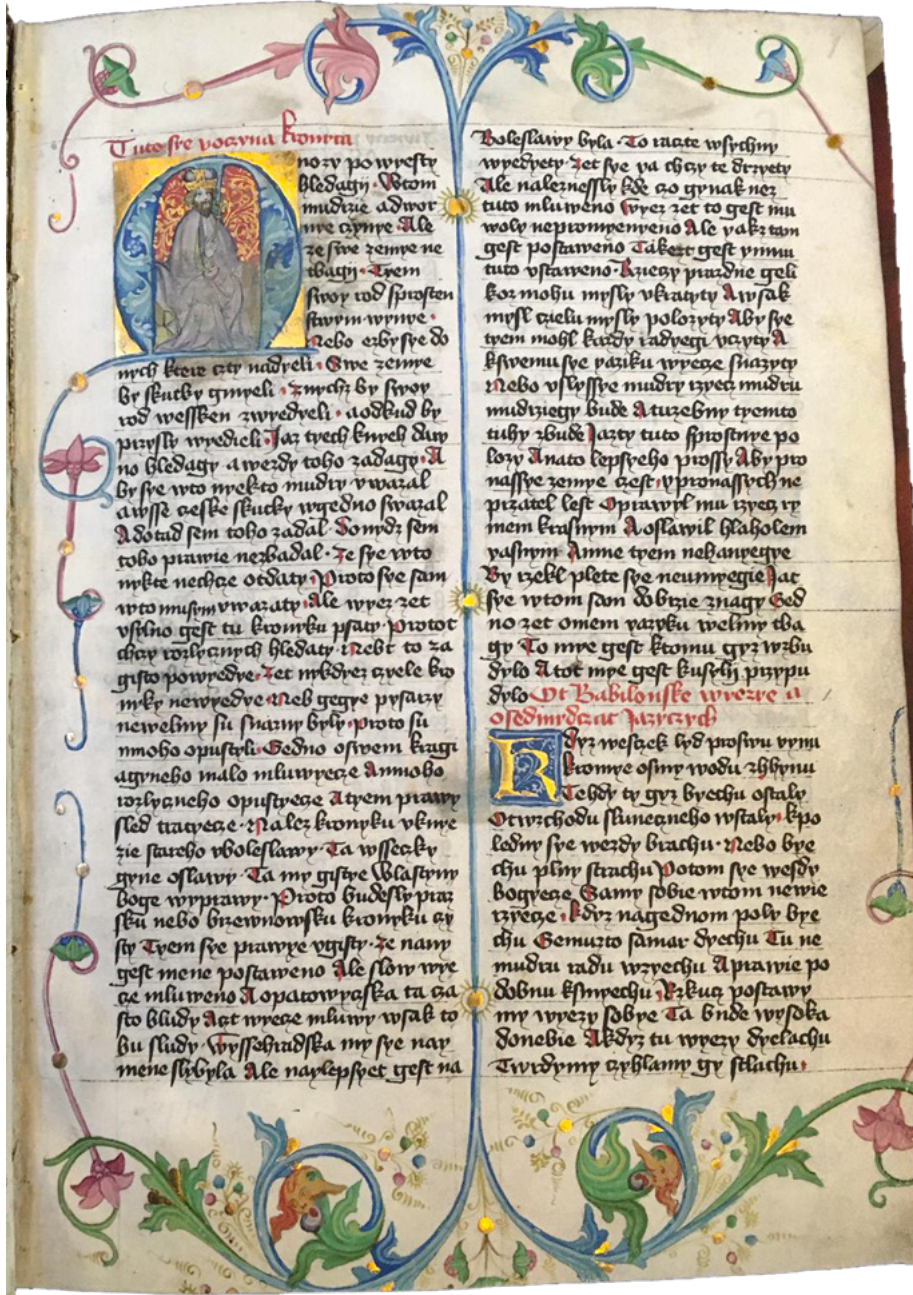 Tuto sye poczyna kronyka
Mnozy powyesty
hledagij · Wtom
mudrzie a dwor
nye czynye · Ale
ze swe zemye ne
tbagij · Tyem
swoy rod sprosten
stwym wynye ·
Nebo erby sye do
nych ktere czty nadyeli · Swe zemye
by skutky gmyeli · Znychz by swoy
rod wessken zwyedyeli · a odkud by
przysly wyedieli · Jaz tyech knyeh daw
no hledagy a werdy toho zadagy · A
by sye wto nyekto mudry vwazal
a wsse czeske skutky wgedno swazal
A dotad sem toho zadal · Donydz sem
toho prawie nezbadal · Ze sye wto
nykte nechcze otdaty · Proto sye sam
wto musym vwazaty · Ale wyez zet
vsylno gest tu kronyku psaty · Protot
chczy rozlycznych hledaty · Nebt to za
gisto powyedye · Zet nykdyez czyele kro
nyky newyedye · Neb gegye pysarzy
newelmy su snazny byly · Proto su
mnoho opustyli · Gedno oswem kragi
a gyneho malo mluwyecze A mnoho
rozlyczneho opustyecze A tyem prawy
sled tratyecze · Nalez kronyku vknye
zie stareho vboleslawy · Ta wsseczky
gyne oslawy · Ta my gistye Wlastyny
boge wyprawy · Proto budesly praz
sku nebo brzewnowsku kronyku czy
sty Tyem sye prawye vgisty · Ze nany
gest mene postaweno Ale slow wye
cze mluweno A opatowyczska ta cza
sto bludy Aczt wyecze mluwy wsak to
bu sludy · Wyssehradska my sye nay
mene slybyla Ale naylepsyet gest na
Boleslawy byla · To raczte wsychny
wyedyety · Zet sye ya chczy te drzyety
Ale naleznessly kde czo gynak nez
tuto mluweno Wyez zet to gest mu
woly nepromyenyeno Ale yakz tam
gest postaweno Takezt gest ynmu
tuto vstaweno · Rzieczy prazdne geli
koz mohu mysly vkratyty A wsak
mysl czelu mysly polozyty Aby sye
tyem mohl kazdy radyegi vczyty A
kswemu sye yaziku wyecze snazyty
Nebo vslyssye mudry rzyecz mudru
mudrziegy bude A turzebny tyemto
tuhy zbude Jazty tuto sprostnye po
lozy A nato lepsyeho prossy Aby pro
nassye zemye czest · y pronassych ne
przatel lest Oprawyl mu rzyecz ry
mem krasnym A oslawil hlaholem
yasnym A mne tyem nehanyegye
By rzekl plete sye neumyegie Jat
sye wtom sam dobrzie znagy Ged
no zet omem yazyku welmy tba
gy To mye gest ktomu gyz wzbu
dylo A tot mye gest kusylij przypu
dylo Ot Babilonske wyezye a
osedmydczat Jazyczych
Kdyz wesczek lyd proswu vynu
kromye osmy wodu zhbynu
Tehdy ty gyz byechu ostaly
Otwzchodu sluneczneho wstaly · kpo
ledny sye werdy brachu · Nebo bye
chu plny strachu Potom sye wesdy
bogyecze Samy sobie wtom newie
rzyecze · kdyz nagednom poly bye
chu Gemuzto samar dyechu Tu ne
mudru radu wzyechu A prawie po
dobnu ksmyechu · Rzkucz postawy
my wyezy sobye Ta bude wysoka
donebie A kdyz tu wyezy dyelachu
Twrdymy czyhlamy gy stlachu ·